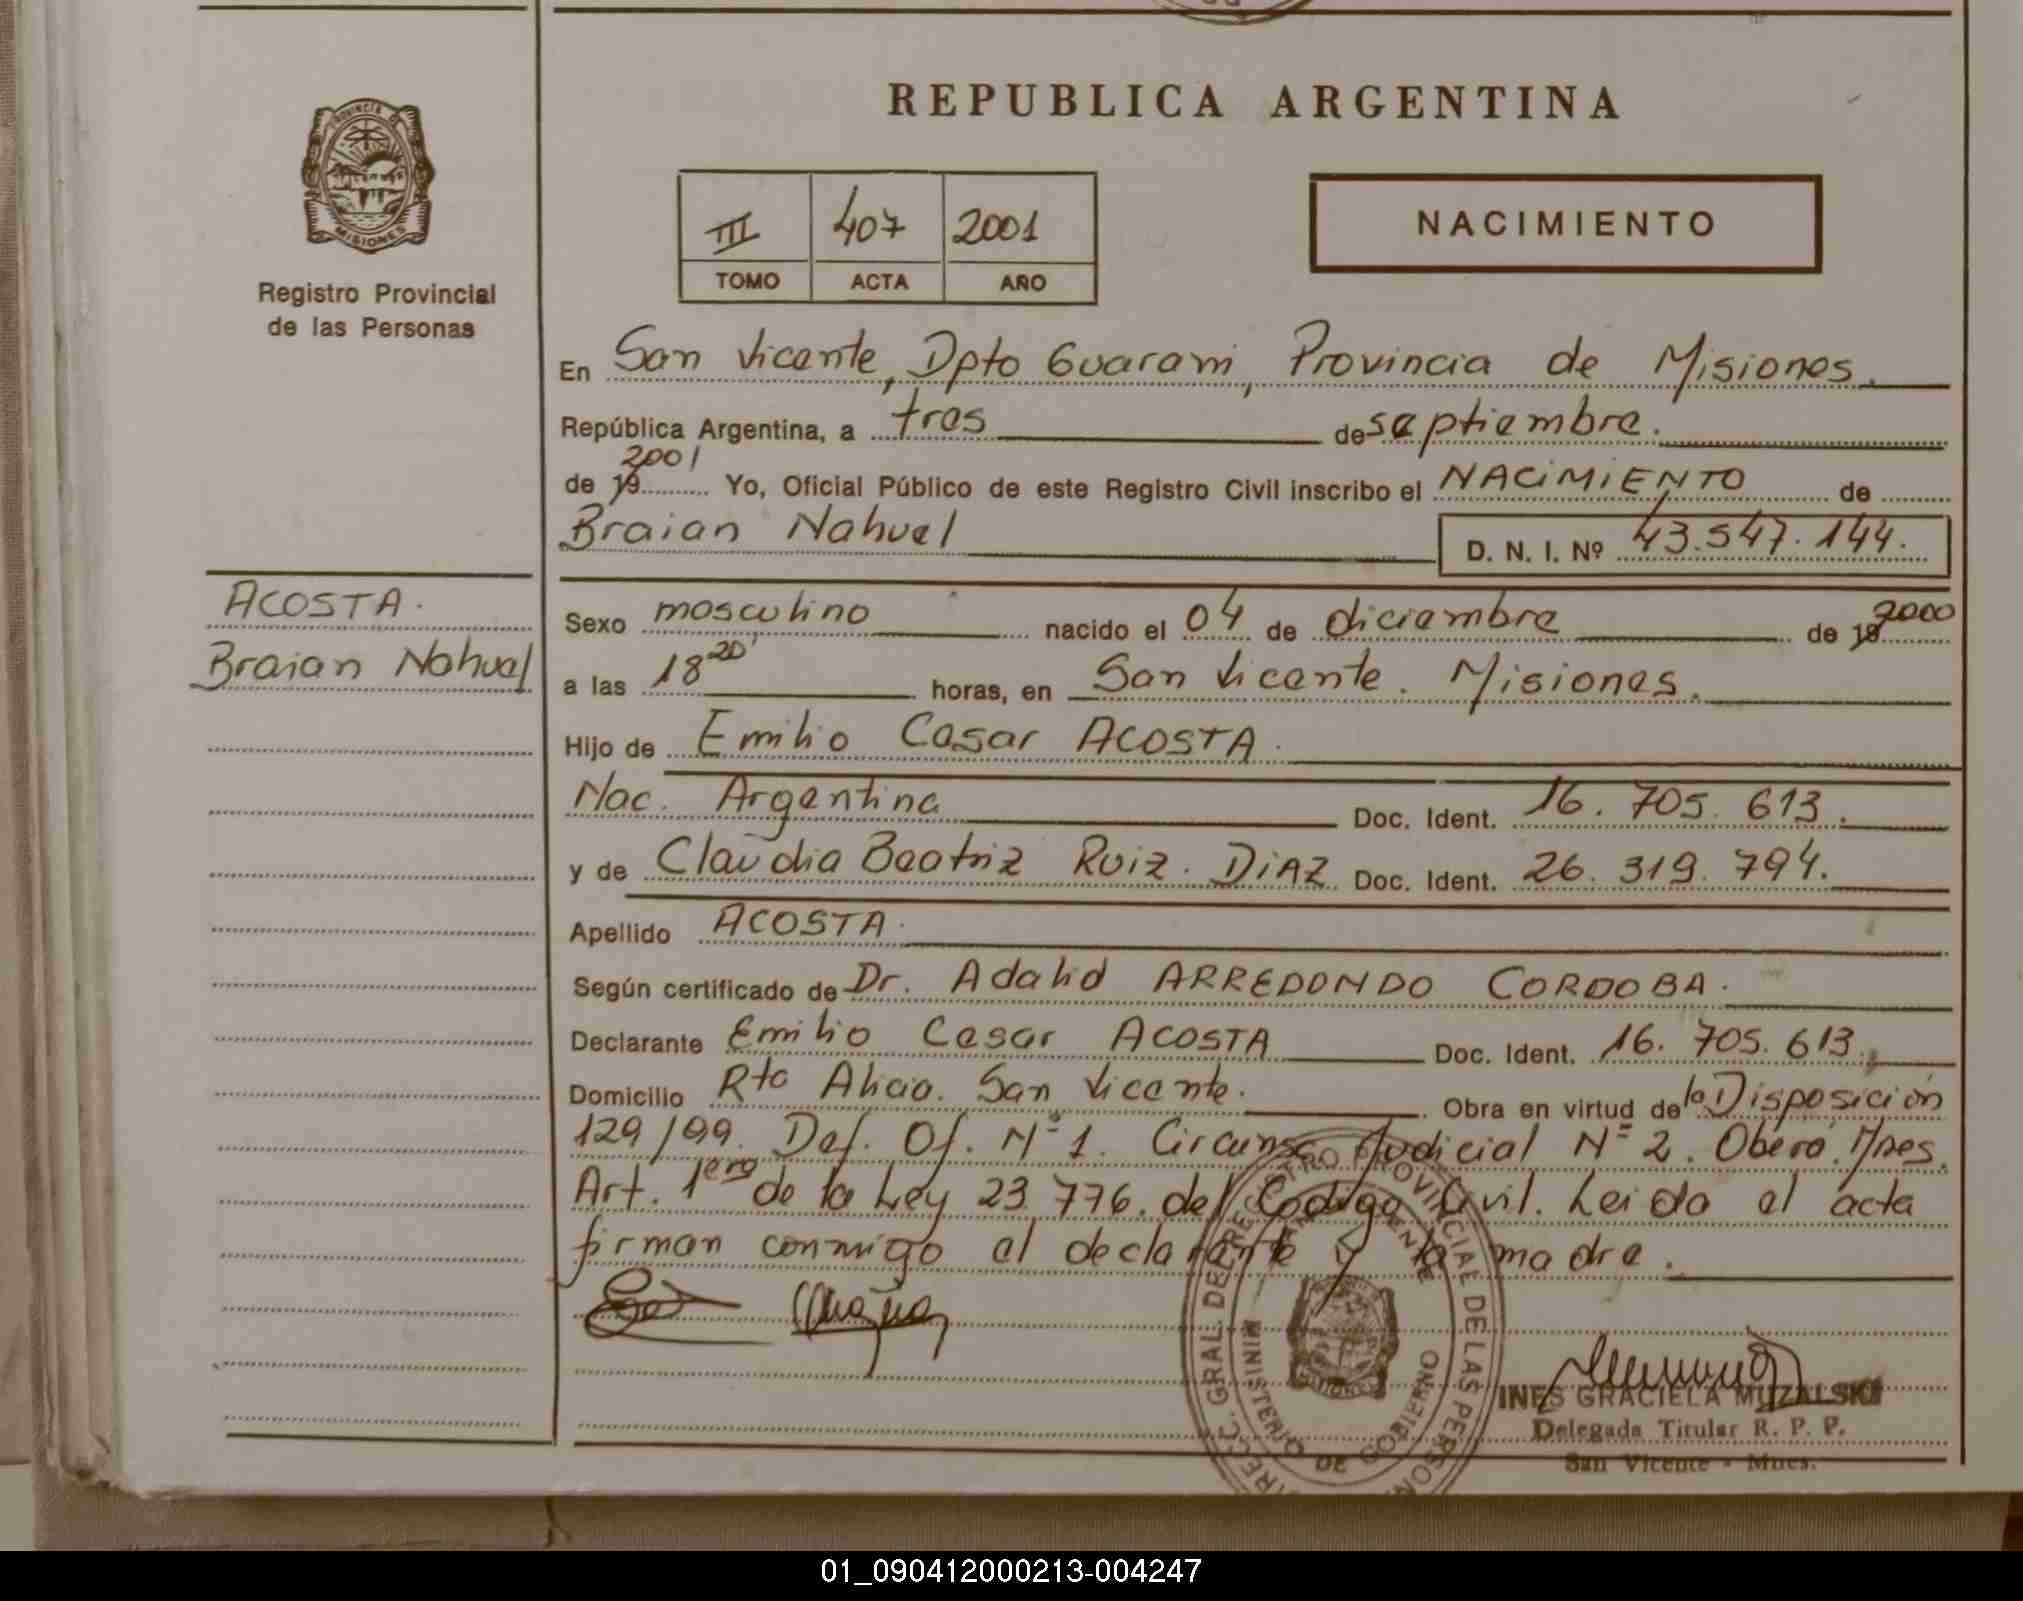 REPUBLICA ARGENTINA
PROVINCIA DE
MISIONES
Registro Provincial
de las Personas
III 407 2001
TOMO ACTA AÑO
NACIMIENTO
En San Vicente, Dpto Guarani, Provincia de Misiones.
República Argentina, a tres de septiembre.
de 19 2001 Yo, Oficial Público de este Registro Civil inscribo el NACIMIENTO de
Braian Nahuel D. N. I. Nº 43.547.144.
ACOSTA.
Braian Nahuel
Sexo masculino nacido el 04 de diciembre de 19 2000
a las 18 20' horas, en San Vicente. Misiones.
Hijo de Emilio Cesar ACOSTA.
Nac. Argentina Doc. Ident. 16. 705. 613.
y de Claudia Beatriz Ruiz. DiAZ Doc. Ident. 26. 319. 794.
Apellido ACOSTA.
Según certificado de Dr. Adalid ARREDONDO CORDOBA.
Declarante Emilio Cesar ACOSTA Doc. Ident. 16. 705. 613.
Domicilio Rto Alicia. San Vicente. Obra en virtud de la Disposición
129/99. Def. Of. Nº 1. Circunsc Judicial Nº 2. Oberá. Mnes.
Art. 1ero de la Ley 23.776. del Codigo Civil. Leida el acta
firman conmigo el declarante y la madre.
DIRECC. GRAL. DEL REGISTRO PROVINCIAL DE LAS PERSON
MINISTERIO DE GOBIERNO
INES GRACIELA MUZALSKI
Delegada Titular R. P. P.
San Vicente - Mnes.
01_090412000213-004247